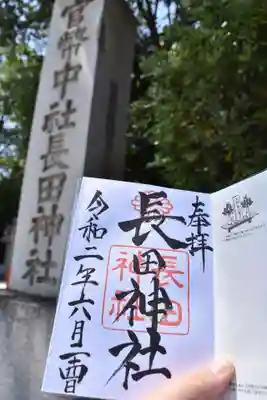 官幣中社長田神社
奉拝
長田神社
長田
神社
令和二年六月